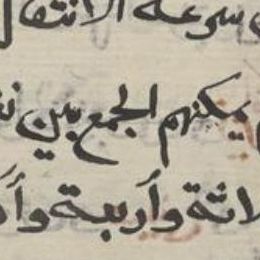 سرعة الانتقال
يمكنهم الجمع بين
ثلاثة وأربعة وأ